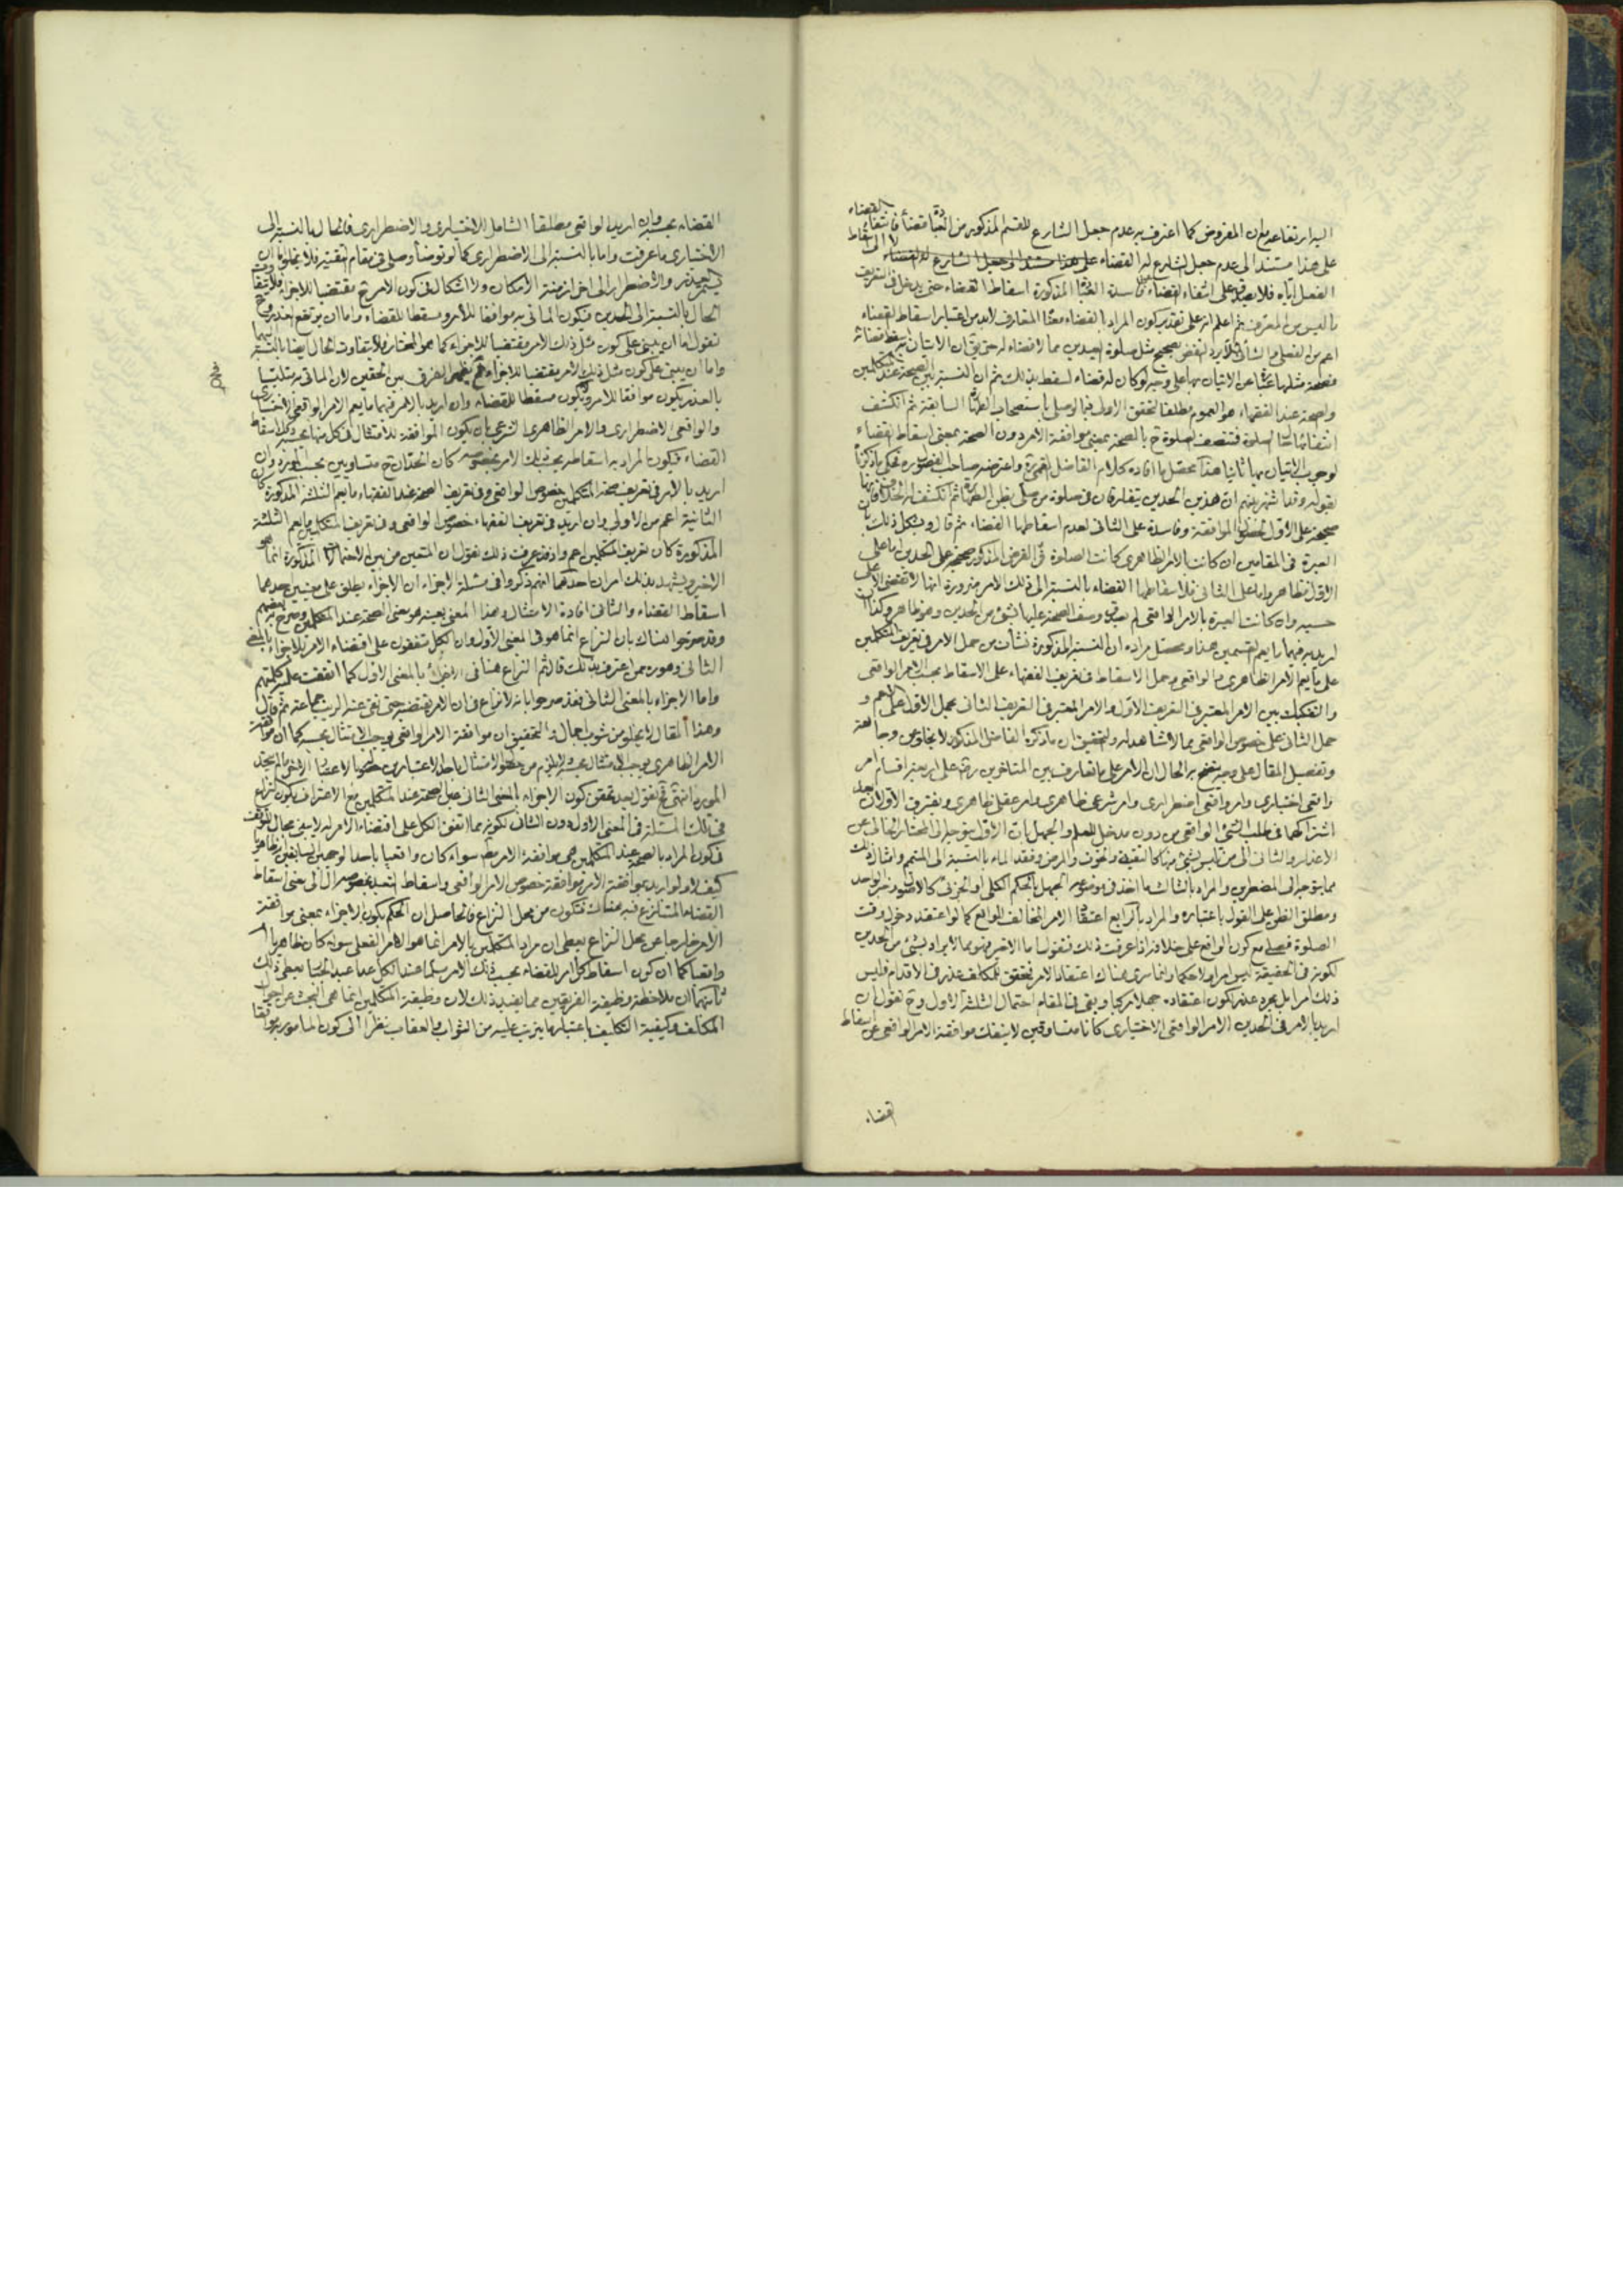 اليه ارتفاعه مع ان المفروض كما اعترف به عدم جعل الشارع للقسم المذكور من قضاء فانتفاء القضاء
على هذا مستند الى عدم جعل الشارع له القضاء على هذا مستندا وجعل الشارع لا الى اسقاط
الفعل اياه فلا يصدق على انتفاء القضاء المذكورة اسقاط القضاء حتى يدخل في التعريف
ما ليس من المعرف ثم اعلم انه على تقدير كون المراد بالقضاء المتعارف لابد من اعتبار اسقاط القضاء
اعم من الفعلي والشأني فلا يرد النقض بصحيح مثل صلوة العيدين مما لا قضاء له
فصحة مثلها عن الاتيان بها على وجه لو كان له قضاء لسقط بذلك ثم ان النسبة بين الصحة عند المتكلمين
والصحة عند الفقهاء هو العموم مطلقا لتحقق الاول فيما لو صلى باستصحاب الطهارة السابقة ثم انكشف
انتفائها الصلوة فتتصف الصلوة ح بالصحة بمعنى موافقة الامر دون الصحة بمعنى اسقاط القضاء
لوجوب الاتيان بها ثانيا هذا محصل ما افاده كلام الفاضل القمي ره واعترضه صاحب الفصول ره
بقوله وقد اشتهر بينهم ان هذين الحدين في صلوة من صلى بظن الطهارة ثم انكشف له الخلاف فانها
صحيحة على الاول لحصول الموافقة وفاسدة على الثاني لعدم اسقاطها القضاء ثم قال ويشكل ذلك بان
العبرة في المقامين ان كانت بالامر الظاهري كانت الصلوة في الفرض المذكور صحيحة على الحدين اما على
الاول فظاهر واما على الثاني فلاسقاطها القضاء بالنسبة الى ذلك الامر ضرورة انها لا تقتضي على
حسبه وان كانت العبرة بالامر الواقعي لم يصدق وصف الصحة عليها بشئ من الحدين وهو ظاهر وكذا ان
اريد به فيهما ما يعم القسمين هذا ومحصل مراده ان النسبة المذكورة نشأت من حمل الامر في تعريف المتكلمين
على ما يعم الامر الظاهري والواقعي وحمل الاسقاط في تعريف الفقهاء على الاسقاط بحسب الامر الواقعي
والتفكيك بين الامر المعتبر في التعريف الاول والامر المعتبر في التعريف الثاني بحمل الاول على الاعم و
حمل الثاني على خصوص الواقعي مما لا شاهد له والتحقيق ان ما ذكره الفاضل المذكور لا يخلو من وجاهة
وتفصيل المقال على وجه يتضح به الحال ان الامر على ما تعارف بين المتأخرين ره على اربعة اقسام امر
واقعي اختياري وامر واقعي اضطراري وامر شرعي ظاهري وامر عقلي ظاهري ويفترق الاولان بعد
اشتراكهما في طلب الشئ الواقعي من دون مدخل للعلم والجهل بان الاول يتوجه الى المختار الخالي عن
الاعذار والثاني الى من تلبس بشئ منها كالتقية والخوف والمرض وفقد الماء بالنسبة الى المتيمم وامثال ذلك
مما يتوجه الى المضطرين والمراد بالثالث ما اخذ في موضوعه الجهل بالحكم الكلي او الجزئي كالاصول وخبر الواحد
ومطلق الظن على القول باعتباره والمراد بالرابع اعتقاد الامر المخالف للواقع كما لو اعتقد دخول وقت
الصلوة فصلى مع كون الواقع على خلافه اذا عرفت ذلك فنقول اما الاخير فهو مما لا يراد بشئ من الحدين
لكونه في الحقيقة ليس امرا ولا حكما وانما سرى هناك اعتقاد الامر فتحقق للمكلف عذر في الاقدام فليس
ذلك امرا بل مجرد عذر لكون اعتقاده جهلا مركبا وبقي في المقام احتمال الثلثة الاول وح نقول ان
اريد بالامر في الحدين الامر الواقعي الاختياري كانا متساوقين لا ينفك موافقة الامر الواقعي عن اسقاط
القضاء
القضاء بحسبه وان اريد الواقعي مطلقا الشامل للاختياري والاضطراري فالحال بالنسبة الى
الاختياري ما عرفت واما بالنسبة الى الاضطراري كما لو توضأ وصلى في مقام التقية فلا يخلو اما ان
والاضطرار الى اخر ازمنة الامكان ولا اشكال في كون الامر ح مقتضيا للاجزاء فلا يتفاوت
الحال بالنسبة الى الحدين فيكون الماتي به موافقا للامر ومسقطا للقضاء واما ان يرتفع العذر وح
نقول اما ان يبنى على كون مثل ذلك الامر مقتضيا للاجزاء كما هو المختار فلا يتفاوت الحال ايضا بالنسبة اليهما
واما ان يبنى على كون مثل ذلك الامر مقتضيا للاجزاء فح يظهر الفرق بين الحدين لان الماتي به متلبسا
بالعذر يكون موافقا للامر ولا يكون مسقطا للقضاء وان اريد بالامر فيهما ما يعم الامر الواقعي الاختياري
والواقعي الاضطراري والامر الظاهري الشرعي بان يكون الموافقة للامتثال في كل منها بحسبه وكذا اسقاط
القضاء فيكون المراد به اسقاطه بحسب ذلك الامر بخصوصه كان الحدان ح متساويين بحسب المورد وان
اريد بالامر في تعريف صحة المتكلمين خصوص الواقعي وفي تعريف الصحة عند الفقهاء ما يعم الثلثة المذكورة كان
الثانية اعم من الاولى وان اريد في تعريف الفقهاء خصوص الواقعي وفي تعريف المتكلمين ما يعم الثلثة
المذكورة كان تعريف المتكلمين اعم واذ قد عرفت ذلك نقول ان المتعين من بين الاحتمالات المذكورة انما هو
الاخير ويشهد بذلك امران احدهما انهم ذكروا في مسئلة الاجزاء ان الاجزاء يطلق على معنيين احدهما
اسقاط القضاء والثاني افادة الامتثال وهذا المعنى بعينه هو معنى الصحة عند المتكلمين وصرح به بعضهم
وقد صرحوا هناك بان النزاع انما هو في المعنى الاول وان الكل متفقون على اقتضاء الامر للاجزاء بالمعنى
الثاني وهو ره ممن اعترف بذلك قال ثم النزاع هنا في الاجزاء بالمعنى الاول كما اتفقت عليه كلمتهم
واما الاجزاء بالمعنى الثاني فقد صرحوا بانه لا نزاع في ان الامر يقتضيه حتى نفى عنه الريب جماعة ثم قال
وهذا المقال لا يخلو من شوب اجمال والتحقيق ان موافقة الامر الواقعي يوجب الامتثال بحسبه كما ان موافقة
الامر الظاهري يوجب الامتثال بحسبه ولا يلزم من حصول الامتثال باحد الاعتبارين حصوله بالاعتبار الاخر ما لم يتحد
المورد انتهى فح نقول بعد تحقق كون الاجزاء بالمعنى الثاني عين الصحة عند المتكلمين مع الاعتراف بكون النزاع
في تلك المسئلة في المعنى الاول دون الثاني لكونه مما اتفق الكل على اقتضاء الامر له لا يبقى مجال للتوقف
في كون المراد بالصحة عند المتكلمين هي موافقة الامر مطلقا سواء كان واقعيا باحد الوجهين السابقين او ظاهريا
كيف لا ولو اريد بموافقة الامر موافقة خصوص الامر الواقعي واسقاط التعبد بخصوصه رجع الى معنى اسقاط
القضاء المتنازع فيه هناك فتكون من محل النزاع فالحاصل ان الحكم بكون الاجزاء بمعنى موافقة
الامر خارجا عن محل النزاع يعطى ان مراد المتكلمين بالامر انما هو الامر الفعلي سواء كان ظاهريا ام
واقعيا كما ان كون اسقاط كل امر للقضاء بحسب ذلك الامر مسلما عند الكل عدا عبد الجبار يعطى ذلك
ثانيهما ان ملاحظة وظيفة الفريقين مما يفيد ذلك لان وظيفة المتكلمين انما هي البحث عن احوال
المكلف وكيفية التكليف باعتبار ما يترتب عليه من الثواب والعقاب نظرا الى كون المامور به موافقا